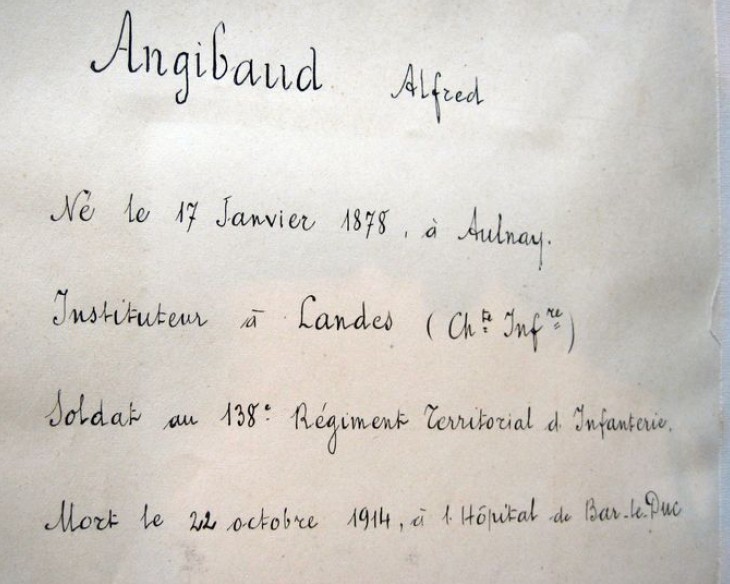 Angibaud Alfred
Né le 17 Janvier 1878, à Aulnay.
Instituteur à Landes (Chte Infre)
Soldat au 138e Régiment Territorial d Infanterie.
Mort le 22 octobre 1914, à l Hôpital de Bar-le-Duc